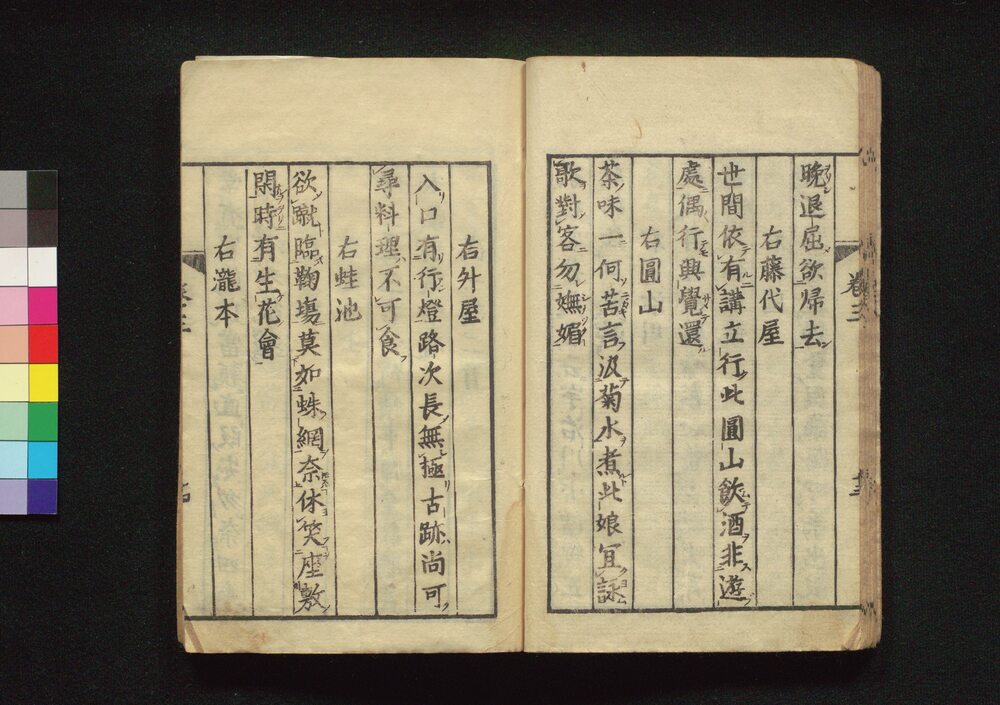 晩退屈欲帰去
右藤代屋
世間依有講立行此圓山飲酒非遊
處偶行興覺還
右圓山
茶味一何苦言汲菊水煮此娘宜詠
歌對客勿嫵媚
右外屋
入口有行燈路次長無極古跡尚可
尋料理不可食
右蛙池
欲蹴臨鞠場莫如蛛網奈休笑座敷
閑時有生花會
右瀧本
卷三